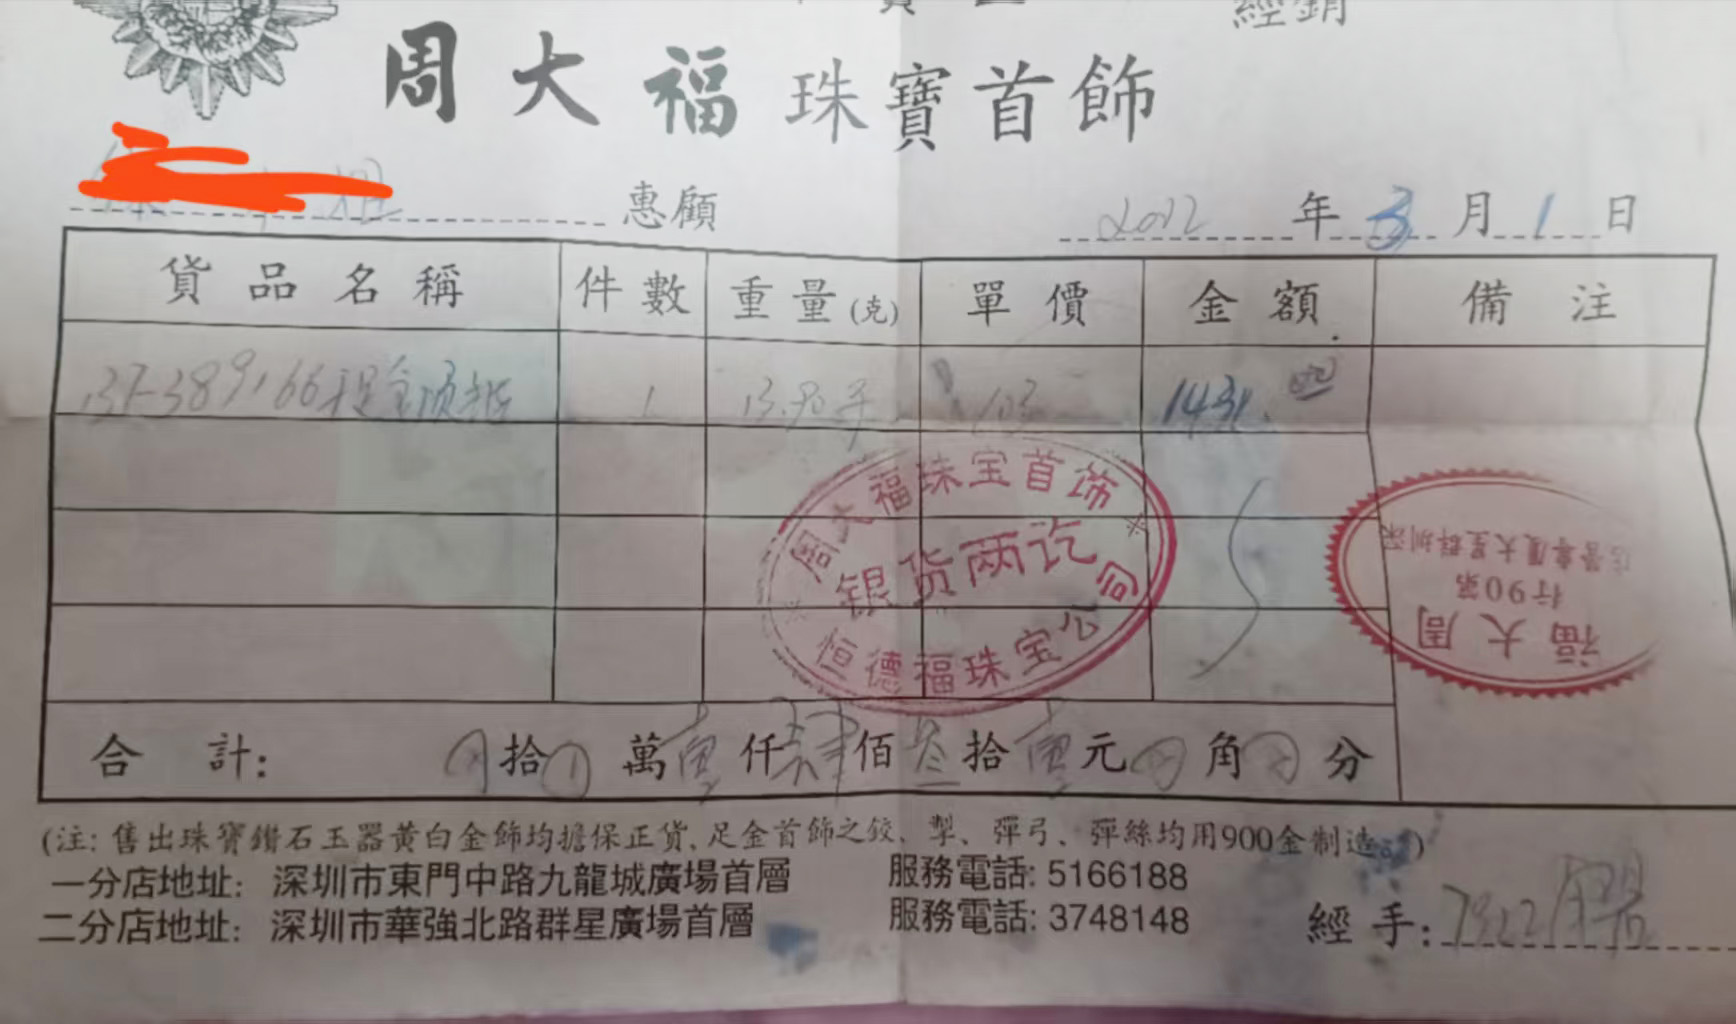 經銷
周大福珠寶首飾
惠顧
2022年3月1日
貨品名稱 件數 重量(克) 單價 金額 備注
足金项链 1 13.90 103 1431.00
周大福珠宝首饰
银货两讫
恒德福珠宝公司
深圳群星大厦专营店
第06行
周大福
合計: 拾 萬壹仟肆佰叁拾壹元 角 分
(注: 售出珠寶鑽石玉器黃白金飾均擔保正貨、足金首飾之鉸、掣、彈弓、彈絲均用900金制造
一分店地址: 深圳市東門中路九龍城廣場首層 服務電話: 5166188
二分店地址: 深圳市華強北路群星廣場首層 服務電話: 3748148
經手: